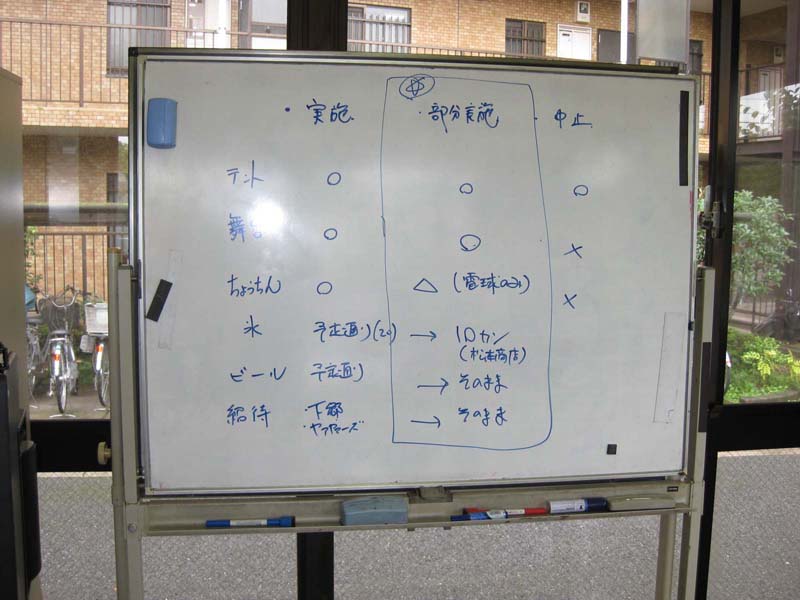 ・実施 ・部分実施 ・中止
テント ○ ○ ○
舞台 ○ ○ ×
ちょうちん ○ △ (電球のみ) ×
氷 予定通り(20) → 10カン
(松本商店)
ビール 予定通り → そのまま
招待 ・下郷 → そのまま